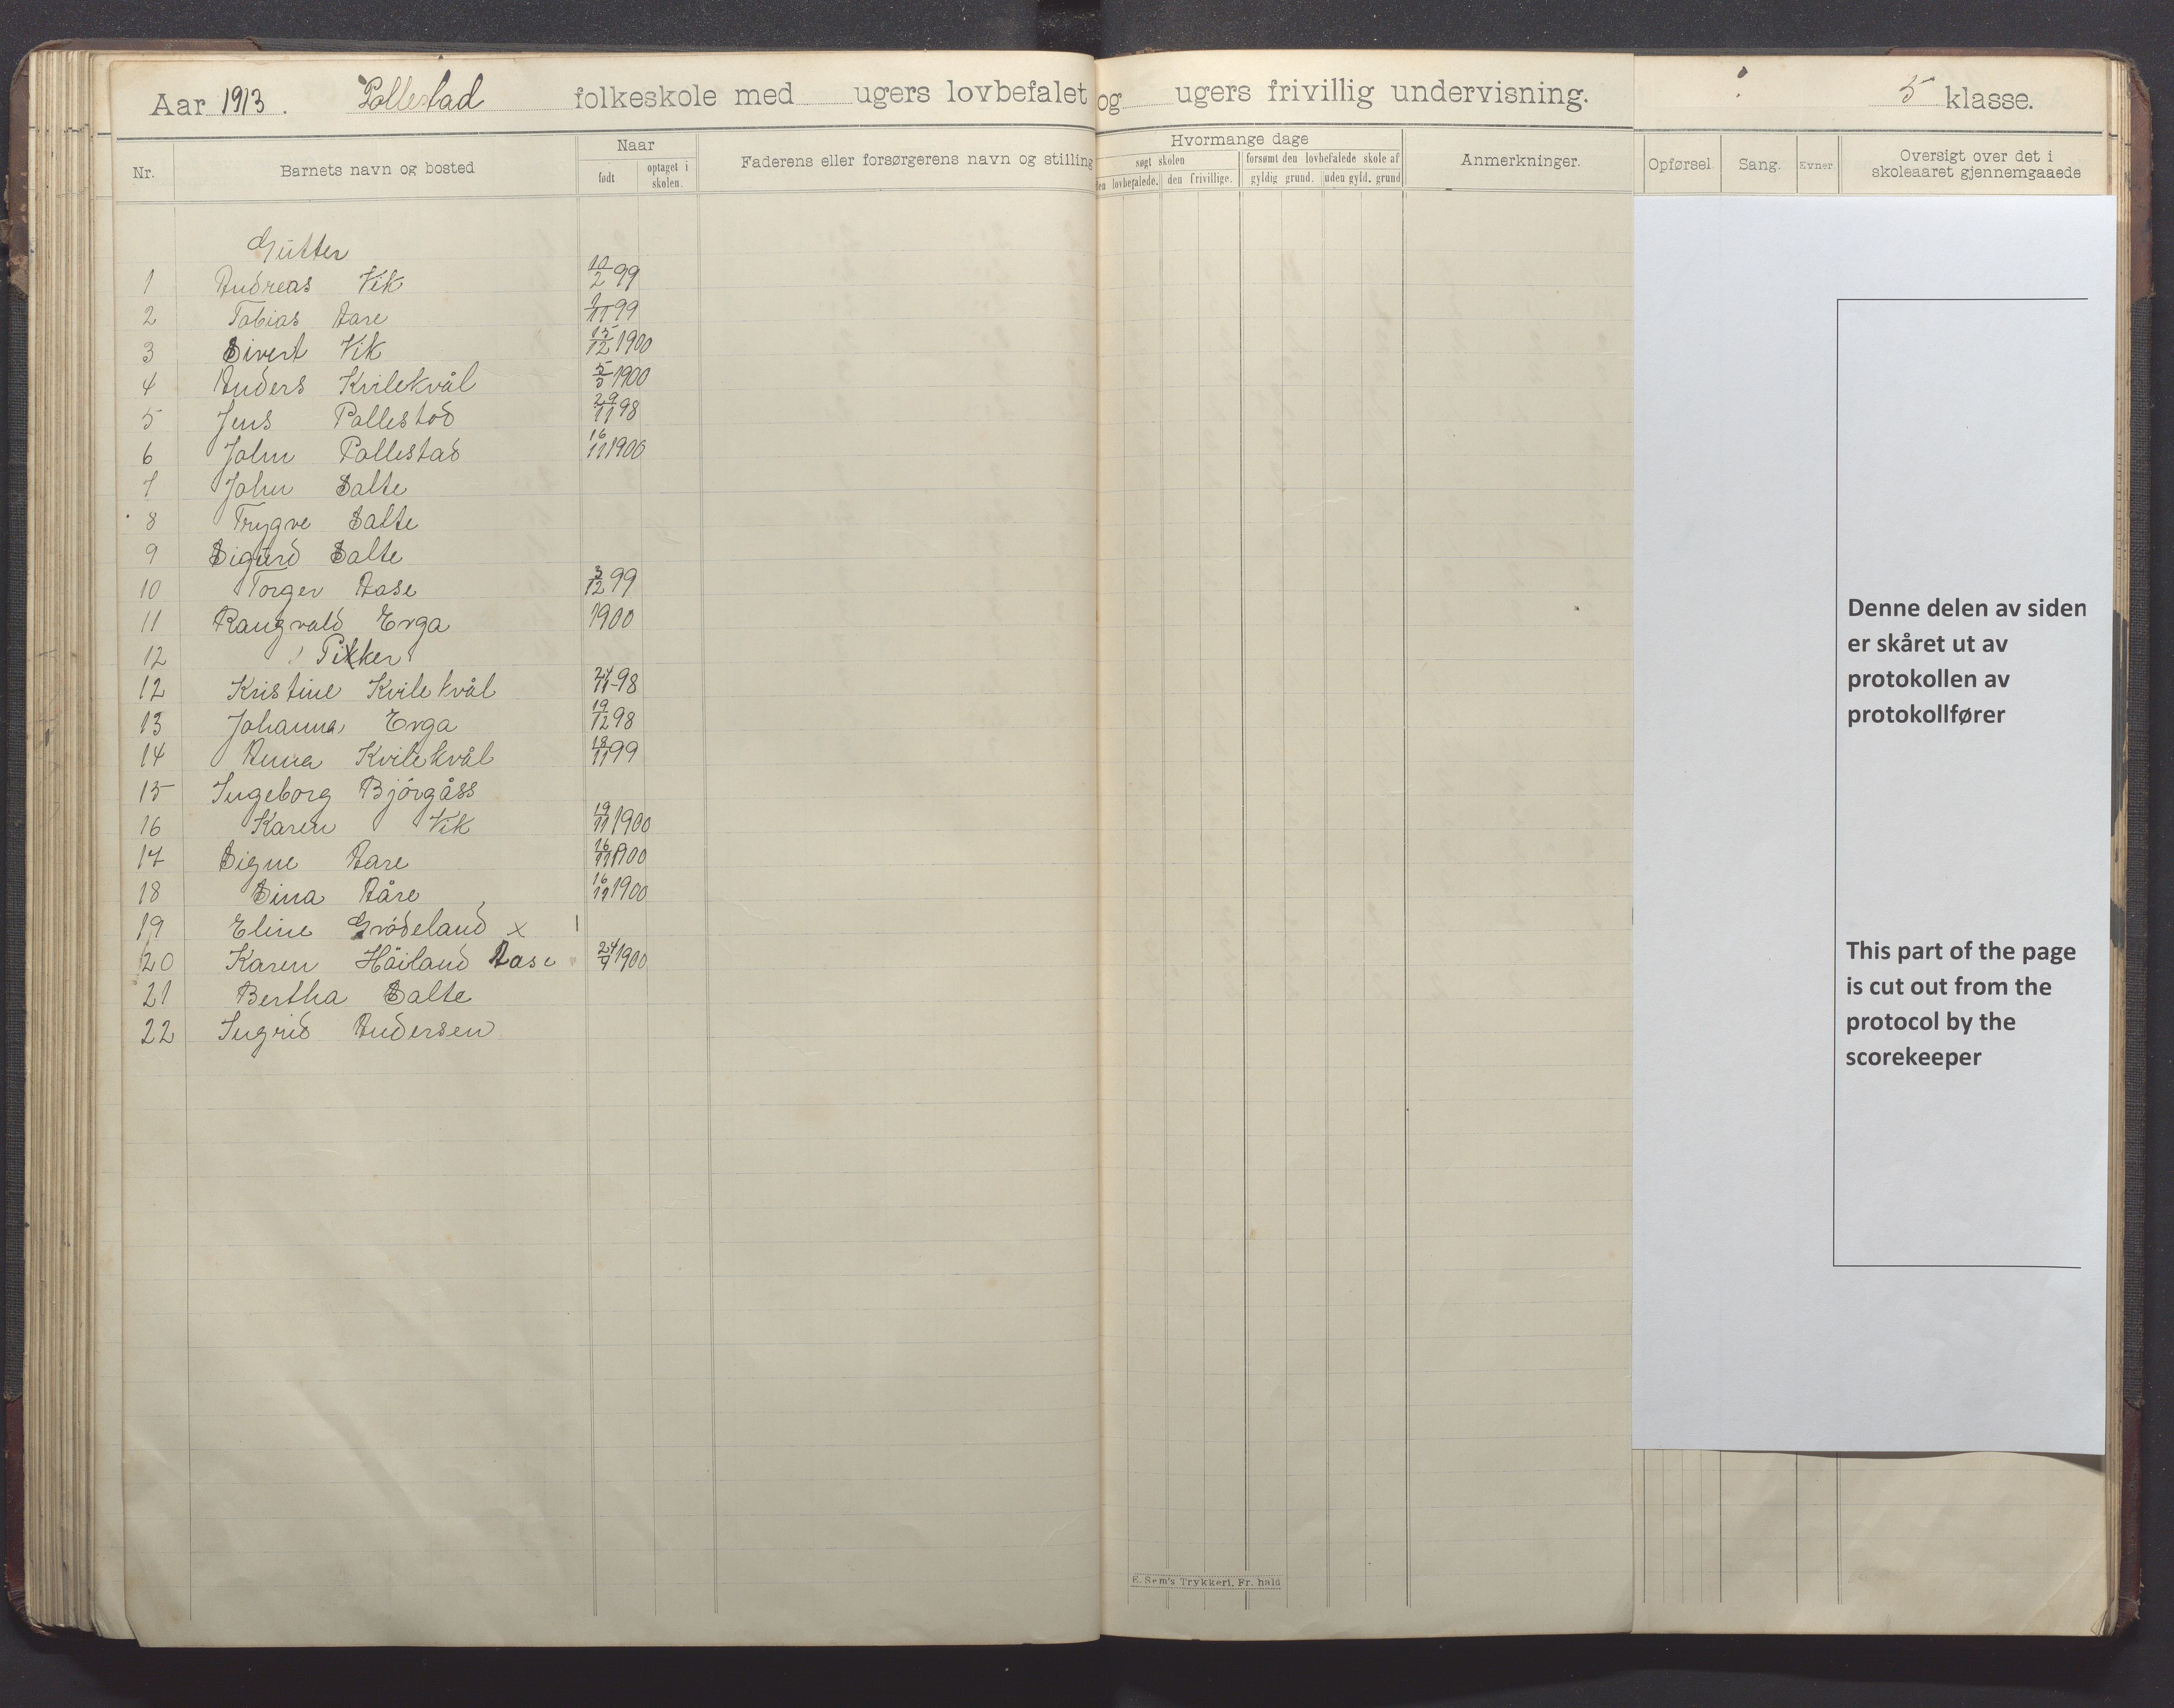 Aar 1913. Pollestad folkeskole med ugers lovbefalet og ugers frivillig undervisning. 5 klasse.
Nr. Barnets navn og bosted Naar født optaget i skolen. Faderens eller forsørgerens navn og stilling Hvormange dage søgt skolen den lovbefalede. den frivillige. forsømt den lovbefalede skole af gyldig grund. uden gyld. grund Anmerkninger. Opførsel. Sang. Evner. Oversigt over det i skoleaaret gjennemgaaede
Gutter
1 Andreas Vik 10/2 99
2 Tobias Aare /11 99
3 Sivert Vik 15/12 1900
4 Anders Kvilekvål 5/5 1900
5 Jens Pollestad 29/11 98
6 John Pollestad 16/11 1900
7 John Salte
8 Trygve Salte
9 Sigurd Salte
10 Torger Aase 3/12 99
11 Rangvald Erga 1900
12 Piker
12 Kristine Kvilekvål 24/11 98
13 Johanna Erga 19/12 98
14 Anna Kvilekvål 18/11 99
15 Ingeborg Bjórgåss
16 Karen Vik 19/11 1900
17 Signe Aare 16/11 1900
18 Sina Aåre 16/11 1900
19 Eline Grødeland x
20 Karen Höiland Aase 24/9 1900
21 Bertha Salte
22 Ingrid Andersen
Denne delen av siden
er skåret ut av
protokollen av
protokollfører
This part of the page
is cut out from the
protocol by the
scorekeeper
E. Sem's Trykkeri, Fr. hald